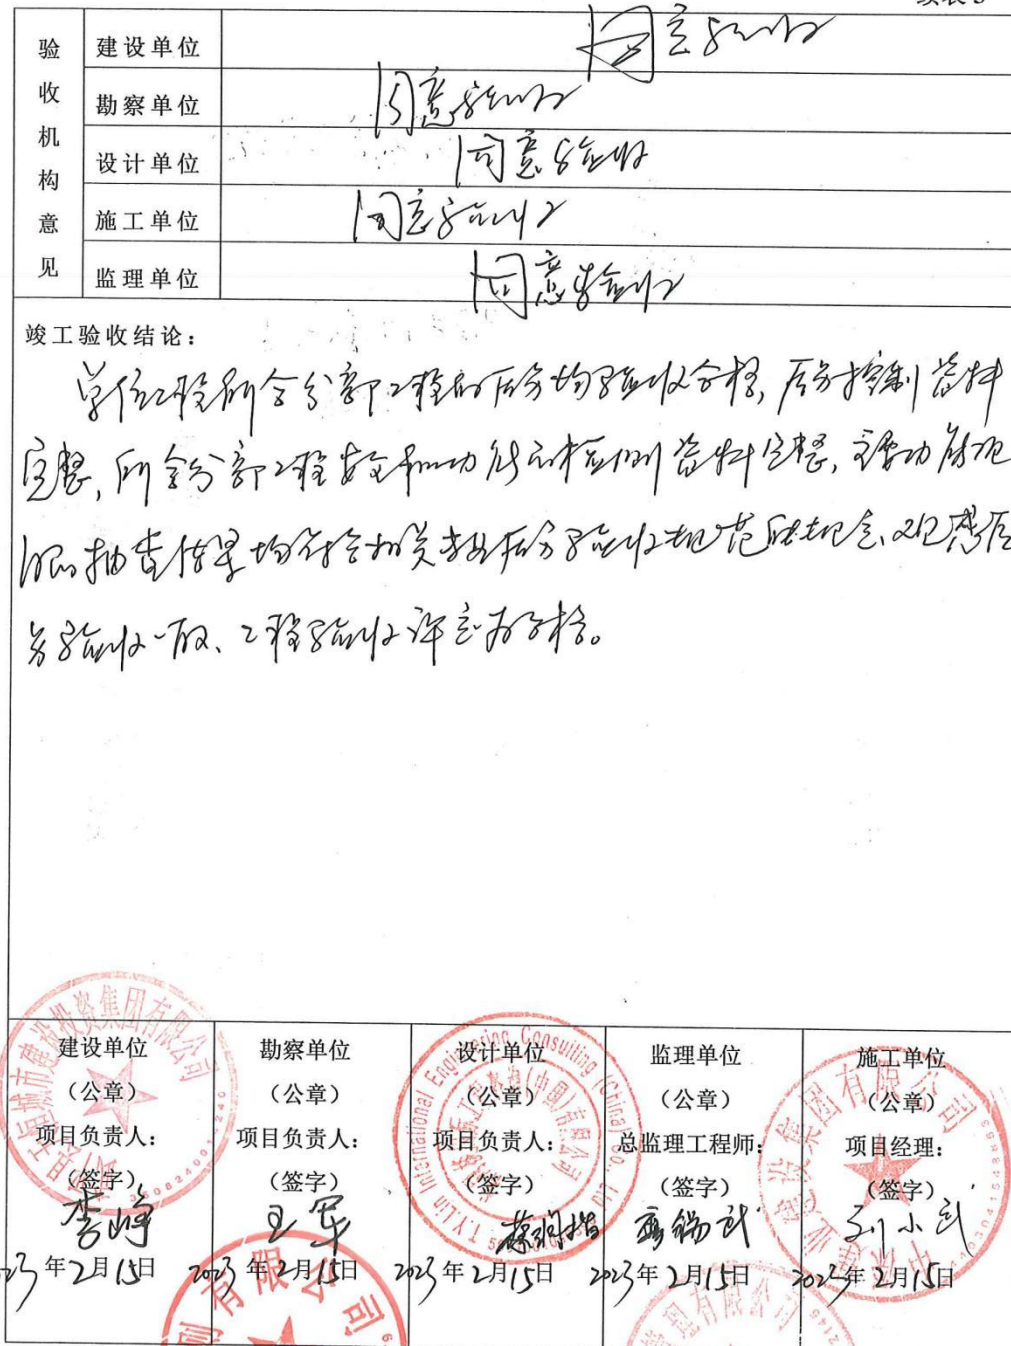 续表3
验收机构意见
建设单位 同意验收
勘察单位 同意验收
设计单位 同意验收
施工单位 同意验收
监理单位 同意验收
竣工验收结论：
单位工程所含分部工程的质量均验收合格，质量控制资料
完整，所含分部工程安全和功能的检测资料完整，主要功能项
目的抽查结果均符合相关专业质量验收规范的规定、观感质
量验收一般、工程验收评定为合格。
建设单位 勘察单位 设计单位 监理单位 施工单位
（公章） （公章） （公章） （公章） （公章）
项目负责人： 项目负责人： 项目负责人： 总监理工程师： 项目经理：
（签字） （签字） （签字） （签字） （签字）
李峰 王军
2023年2月15日 2023年2月15日 2023年2月15日 2023年2月15日 2023年2月15日
城市建设投资集团有限公司
T.Y.Lin International Engineering Consulting (China) Co., Ltd
建设集团有限公司
有限公司
管理有限公司